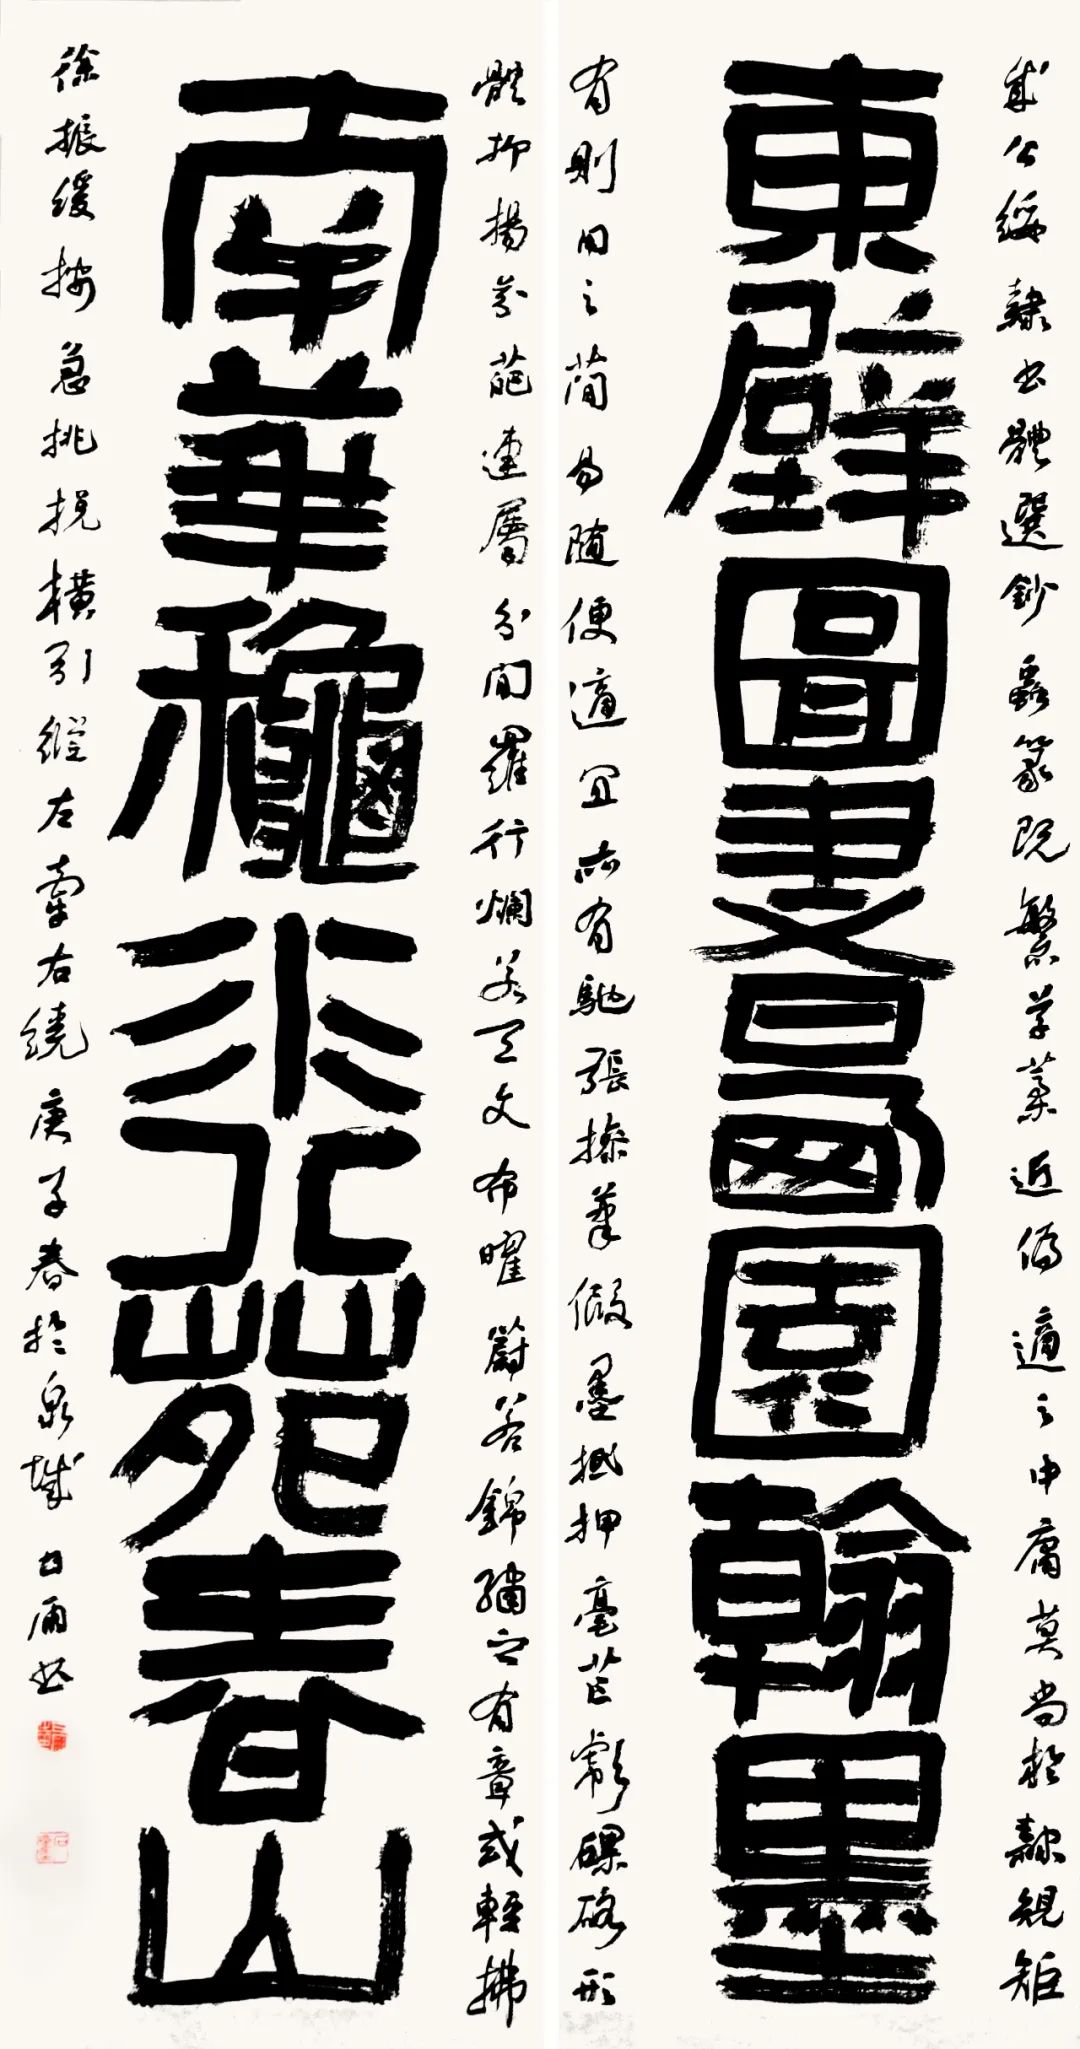 成公綏隸書體選鈔蟲篆既繁草藁近偽適之中庸莫尚於隸規矩
東壁圖書西園翰墨
有則用之簡易隨便適宜亦有馳張操筆假墨抵押毫芒彪磥硌形
體抑揚芬葩連屬分間羅行爛若天文布曜蔚若錦繡之有章或輕拂
南華龝水北苑春山
徐振緩按急挑挽橫引縱左牽右繞庚子春於泉城